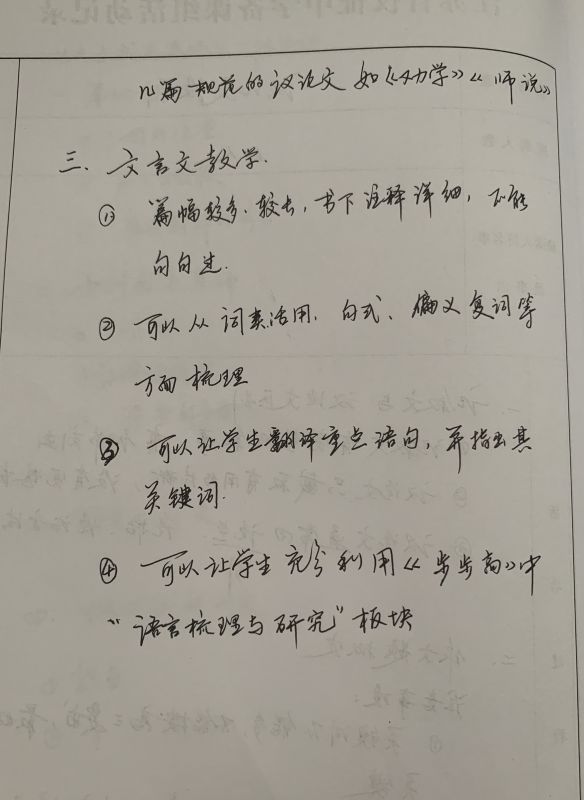 几篇规范的议论文 如《劝学》《师说》
三、文言文教学.
① 篇幅较多、较长，书下注释详细，不能
句句过.
② 可以从词类活用、句式、偏义复词等
方面梳理
③ 可以让学生翻译重点语句，并指出其
关键词.
④ 可以让学生充分利用《步步高》中
“语言梳理与研究”板块